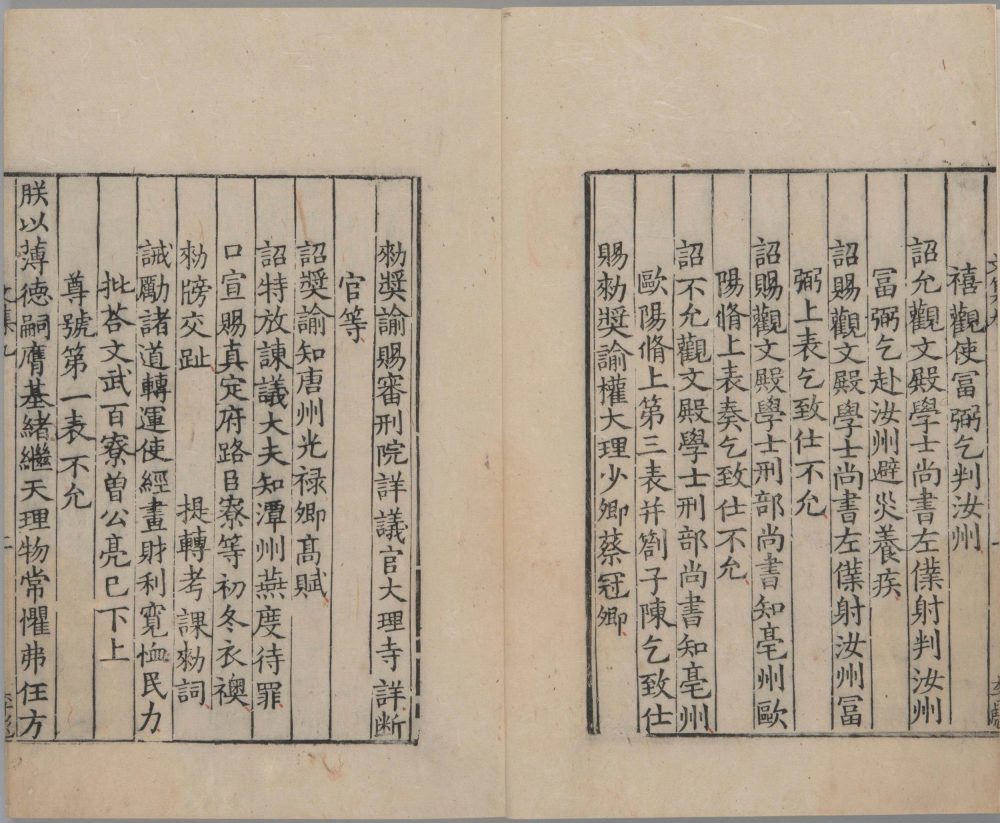 禧觀使冨弼乞判汝州
詔允觀文殿學士尚書左僕射判汝州
冨弼乞赴汝州避災養疾
詔賜觀文殿學士尚書左僕射汝州冨
弼上表乞致仕不允
詔賜觀文殿學士刑部尚書知亳州歐
陽脩上表奏乞致仕不允
詔不允觀文殿學士刑部尚書知亳州
歐陽脩上第三表并劄子陳乞致仕
賜勑獎諭權大理少卿蔡冠卿
勑獎諭賜審刑院詳議官大理寺詳断
官等
詔獎諭知唐州光禄卿髙賦
詔特放諫議大夫知潭州燕度待罪
口宣賜真定府路臣寮等初冬衣襖
勑牓交趾 提轉考課勑詞
誡勵諸道轉運使經畫財利寛恤民力
批荅文武百寮曽公亮已下上
尊號第一表不允
朕以薄德嗣膺基緒繼天理物常懼弗任方